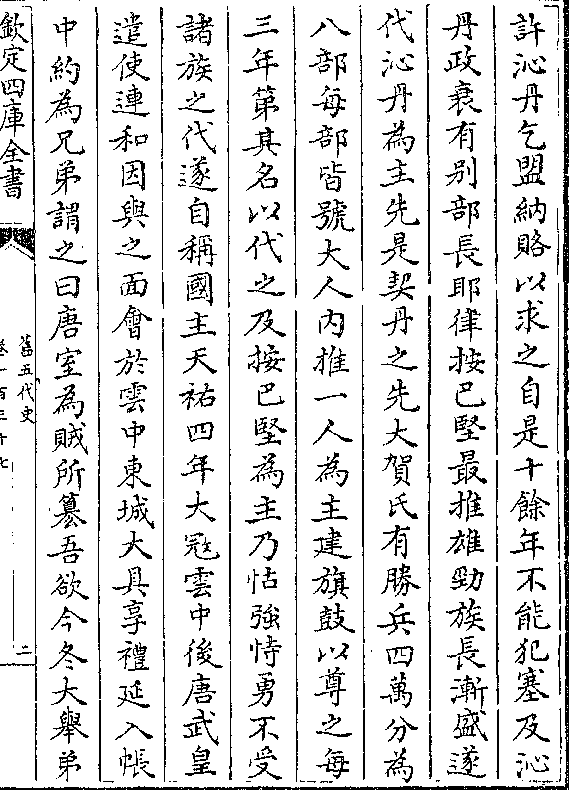 許沁丹乞盟納賂以求之自是十餘年不能犯塞及沁
丹政衰有别部長耶律按巴堅最推雄勁族長漸盛遂
代沁丹為主先是契丹之先大賀氏有勝兵四萬分為
八部每部皆號大人内推一人為主建旗鼓以尊之每
三年第其名以代之及按巴堅為主乃怙強恃勇不受
諸族之代遂自稱國主天祐四年大冦雲中後唐武皇
遣使連和因與之面會於雲中東城大具享禮延入帳
中約為兄弟謂之曰唐室為賊所簒吾欲今冬大舉弟
欽定四庫全書
舊五代史
卷一百三十七
二